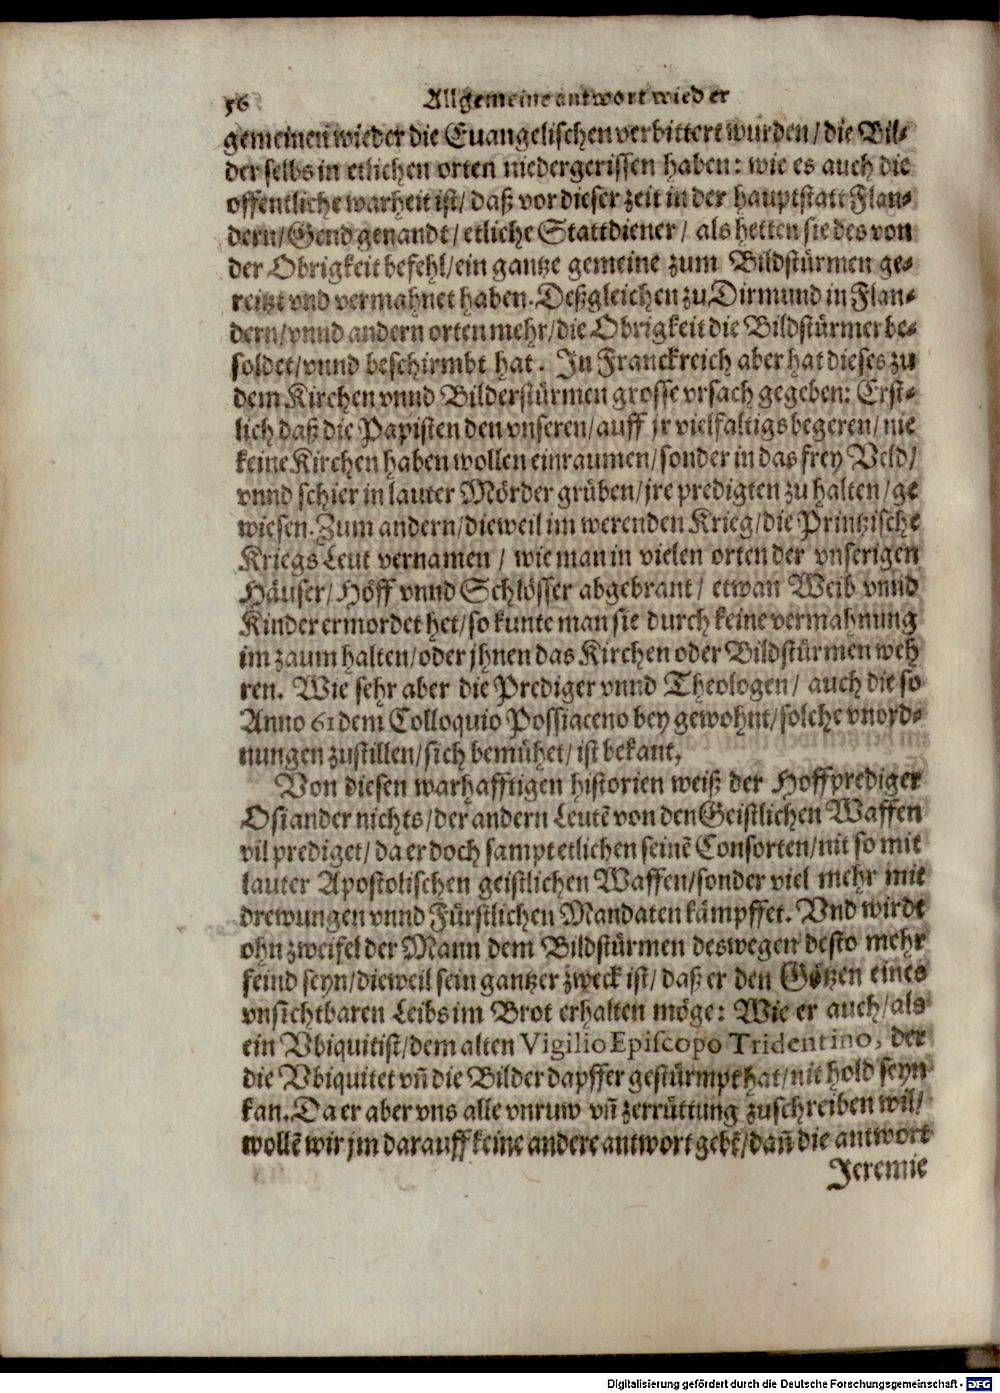 56 Allgemeine antwort wieder
gemeinen wieder die Euangelischen verbittert wurden/ die Bil-
der selbs in etlichen orten niedergerissen haben: wie es auch die
offentliche warheit ist/ daß vor dieser zeit in der hauptstatt Flan-
dern/ Gend genandt/ etliche Stattdiener/ als hetten sie des von
der Obrigkeit befehl/ ein gantze gemeine zum Bildstürmen ge-
reitzt vnd vermahnet haben. Deßgleichen zu Dirmund in Flan-
dern/ vnnd andern orten mehr/ die Obrigkeit die Bildstürmer be-
soldet/ vnnd beschirmbt hat. In Franckreich aber hat dieses zu
dem Kirchen vnnd Bilderstürmen grosse vrsach gegeben: Erst-
lich daß die Papisten den vnseren/ auff jr vielfaltigs begeren/ nie
keine Kirchen haben wollen einraumen/ sonder in das frey Veld/
vnnd schier in lauter Mörder grüben/ jre predigten zu halten/ ge
wiesen. Zum andern/ dieweil im werenden Krieg/ die Printzische
Kriegs Leut vernamen/ wie man in vielen orten der vnserigen
Häuser/ Höff vnnd Schlösser abgebrant/ etwan Weib vnnd
Kinder ermordet het/ so kunte man sie durch keine vermahnung
im zaum halten/ oder jhnen das Kirchen oder Bildstürmen weh
ren. Wie sehr aber die Prediger vnnd Theologen/ auch die so
Anno 61 dem Colloquio Possiaceno bey gewohnt/ solche vnord-
nungen zustillen/ sich bemühet/ ist bekant.
Von diesen warhafftigen historien weiß der Hoffprediger
Osiander nichts/ der andern Leutē von den Geistlichen Waffen
vil prediget/ da er doch sampt etlichen seinē Consorten/ nit so mit
lauter Apostolischen geistlichen Waffen/ sonder viel mehr mit
drewungen vnnd Fürstlichen Mandaten kämpffet. Vnd wirdt
ohn zweifel der Mann dem Bildstürmen deswegen desto mehr
feind seyn/ dieweil sein gantzer zweck ist/ daß er den Götzen eines
vnsichtbaren Leibs im Brot erhalten möge: Wie er auch/ als
ein Vbiquitist/ dem alten Vigilio Episcopo Tridentino, der
die Vbiquitet vn̄ die Bilder dapffer gestürmpt hat/ nit hold seyn
kan. Da er aber vns alle vnruw vn̄ zerrüttung zuschreiben wil/
wollē wir jm darauff keine andere antwort gebē/ dan̄ die antwort
Jeremie
Digitalisierung gefördert durch die Deutsche Forschungsgemeinschaft - DFG